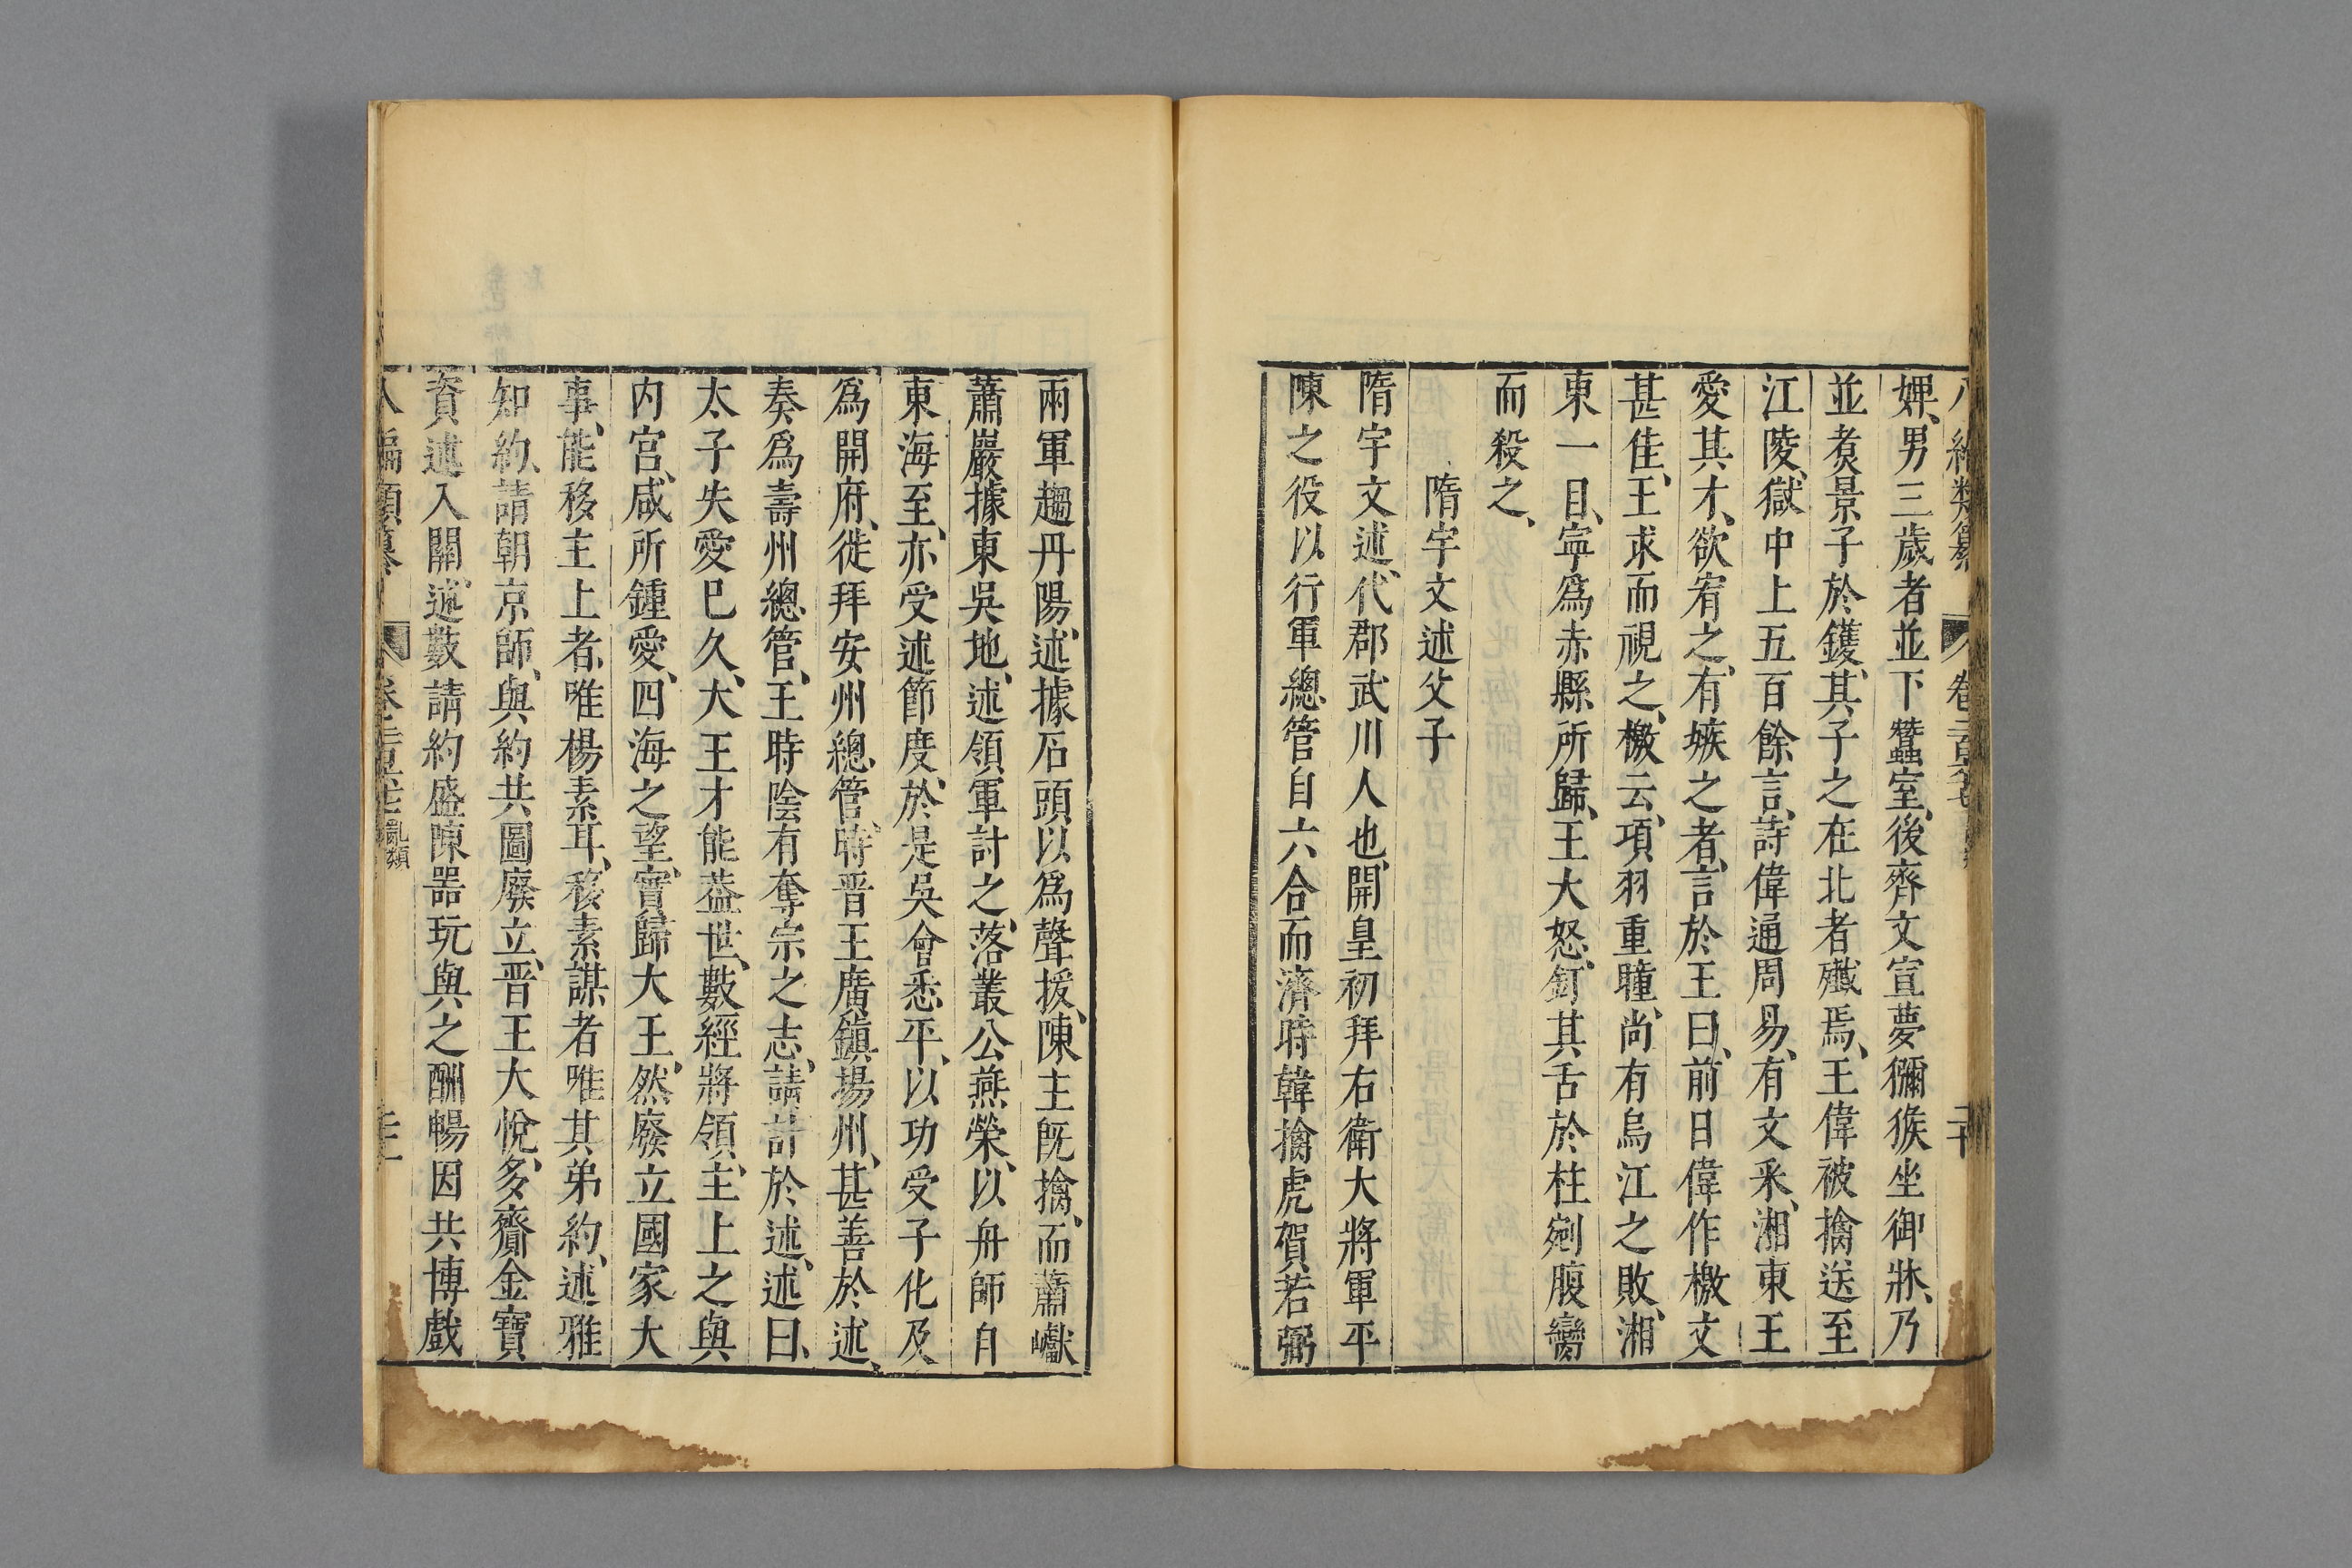 八編類纂 卷二百六七 二十
婢、男三歲者並下蠶室、後齊文宣夢獼猴坐御牀、乃
並煑景子於鑊、其子之在北者殱焉、王偉被擒送至
江陵、獄中上五百餘言、詩偉通周易、有文釆、湘東王
愛其才、欲宥之、有嫉之者、言於王曰、前日偉作檄文
甚佳、王求而視之、檄云、項羽重瞳、尚有烏江之敗、湘
東一目、寧爲赤縣所歸、王大怒、釘其舌於柱剜腹臠
而殺之、
隋宇文述父子
隋宇文述、代郡武川人也、開皇初拜右衛大將軍平
陳之役以行軍總管自六合而濟時韓擒虎賀若弼
兩軍趨丹陽、述據石頭以爲聲援、陳主旣擒、而蕭巘
蕭巖據東吳地、述領軍討之、落叢公燕榮、以舟師自
東海至、亦受述節度、於是吳會悉平、以功受子化及
爲開府、徙拜安州總管、時晋王廣鎮揚州、甚善於述、
奏爲壽州總管、王時陰有奪宗之志、請計於述、述曰、
太子失愛巳久、大王才能葢世、數經將領、主上之與
内宫、咸所鍾愛、四海之望、實歸大王、然廢立國家大
事、能移主上者、唯楊素耳、移素謀者唯其弟約、述雅
知約、請朝京師、與約共圖廢立、晋王大悅、多齎金寶
資述入關、述數請約盛陳器玩與之酬暢因共博戲
八編類纂 卷二百六七 亂類 二十一